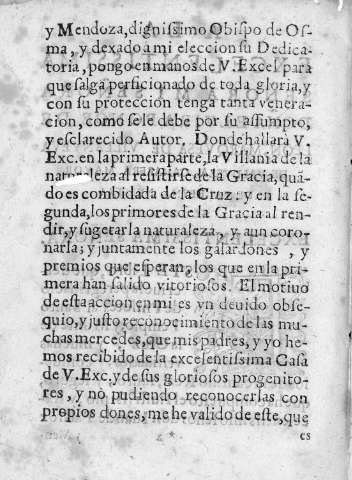 y Mendoza,dignissimo Obispo de Os-
ma, y dexado a mi eleccion su Dedica-
toria, pongo en manos de V. Excel para
que salga perficionado de toda gloria,y
con su proteccion tenga tanta venera-
cion, como se le debe por su assumpto,
y esclarecido Autor. Donde hallarà V.
Exc. en la primera parte, la Villania de la
naturaleza al resistirse de la Gracia, quã-
do es combidada de la Cruz: y en la se-
gunda, los primores de la Gracia al ren-
dir, y sugetar la naturaleza, y aun coro-
narla; y juntamente los galardones, y
premios que esperan, los que en la pri-
mera han salido vitoriosos. El motiuo
de esta accion en mi es vn deuido obse-
quio, y justo reconocimiento de las mu-
chas mercedes, que mis padres, y yo he-
mos recibido de la excelentissima Casa
de V. Exc. y de sus gloriosos progenito-
res, y no pudiendo reconocerlas con
propios dones, me he valido de este, que
es